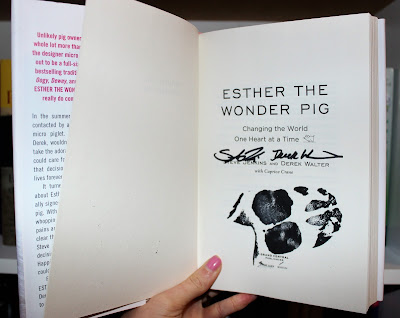 Unlikely pig owner
whole lot more than
the designer micro
out to be a full-si
bestselling traditi
Dogy, Dewey, and
ESTHER THE WON
really do com
In the summer
contacted by a
micro piglet.
Derek, wouldn
take the adora
could care fo
that decision
lives forever
It turne
ally signe
pig. With
whoppin
pains a
clear th
Steve
Happ
could
E
Der
me
ESTHER THE
WONDER PIG
Changing the World
One Heart at a Time
STEVE JENKINS AND DEREK WALTER
with Caprice Crane
GRAND CENTRAL